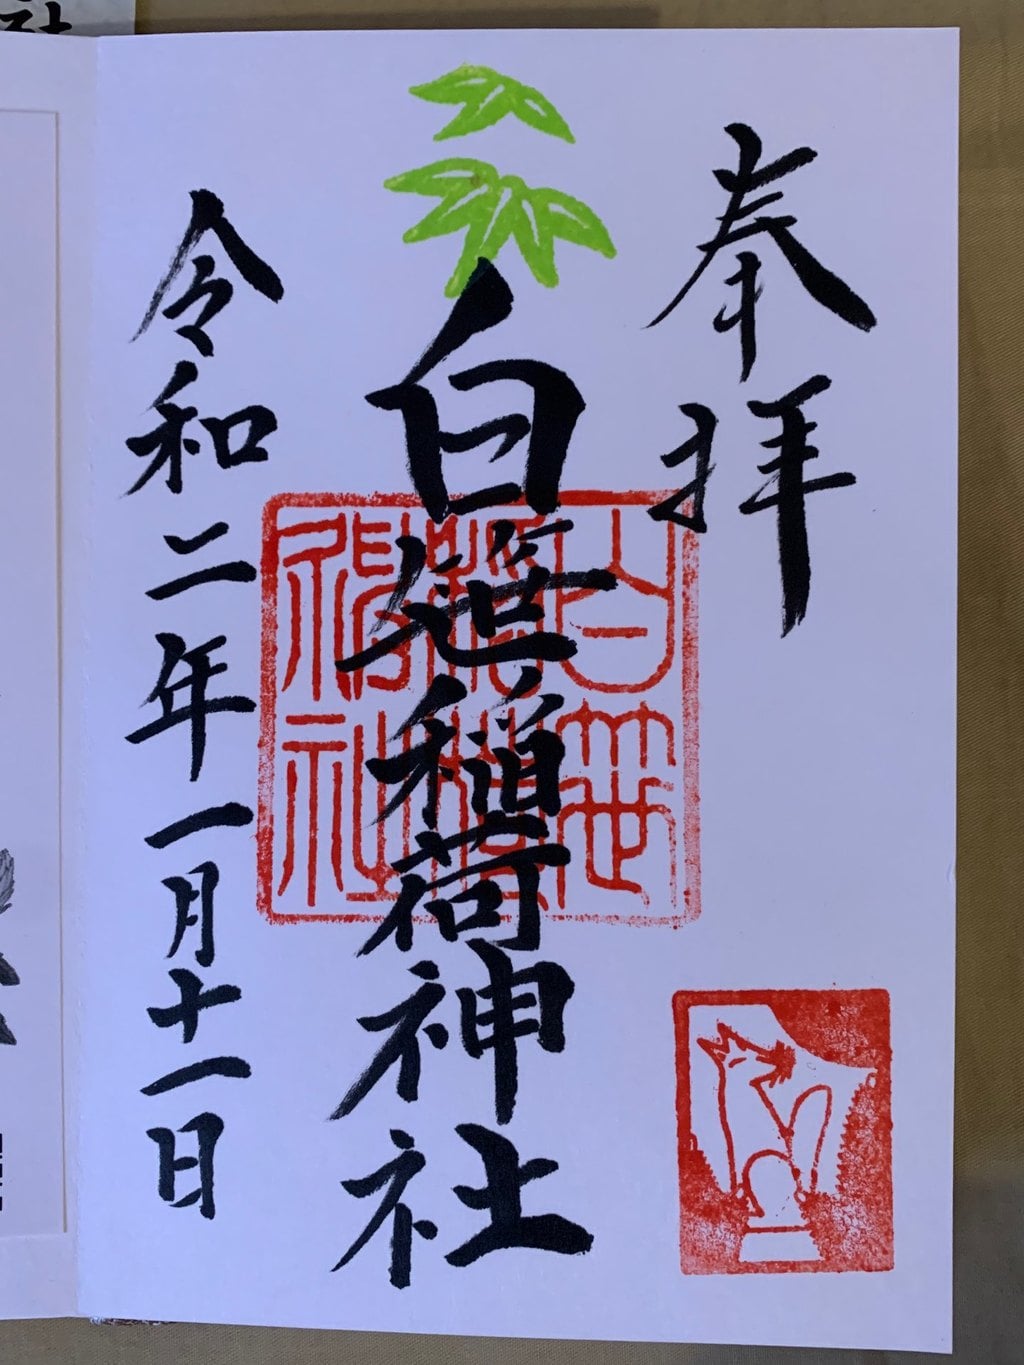 奉拝
白笹稲荷神社
白笹稲荷神社
令和二年一月十一日